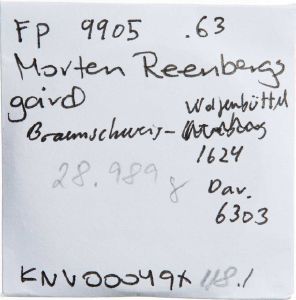 FP 9905 .63
Morten Reenbergs
gård
Wolfenbüttel
Braunschweig-
1624
28.989 g
Dav.
6303
KNV00049X 118.1